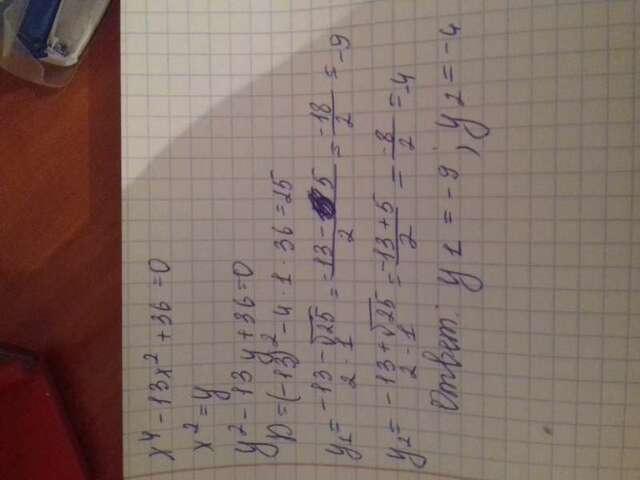 x⁴ - 13x² + 36 = 0
x² = y
y² - 13y + 36 = 0
D = (-13)² - 4 · 1 · 36 = 25
y₁ = (-13 - √25)/(2 · 1) = (-13 - 5)/2 = -18/2 = -9
y₂ = (-13 + √25)/(2 · 1) = (-13 + 5)/2 = -8/2 = -4
Ответ: y₁ = -9 ; y₂ = -4